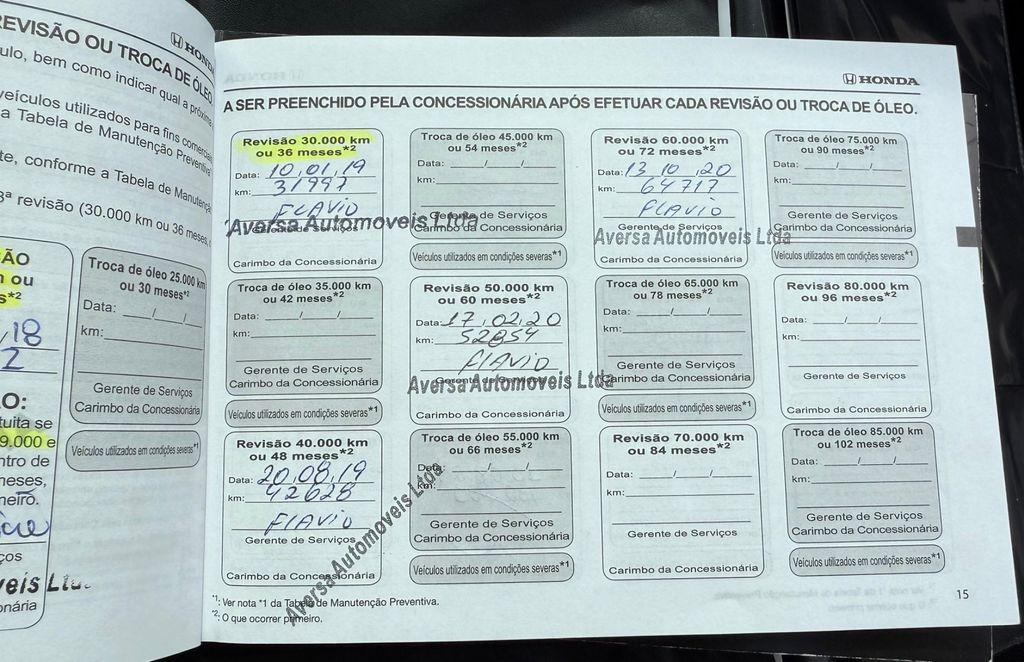 REVISÃO OU TROCA DE ÓLEO
HONDA
ulo, bem como indicar qual a próxima
veículos utilizados para fins comerciais
a Tabela de Manutenção Preventiva
te, conforme a Tabela de Manutenção
3ª revisão (30.000 km ou 36 meses,
ÃO
ou
s*2
,18
2
O:
tuita se
9.000 e
ntro de
meses,
neiro.
ços
veis Ltd
onária
Troca de óleo 25.000 km
ou 30 meses*2
Data: ___/___/___
km:
Gerente de Serviços
Carimbo da Concessionária
Veículos utilizados em condições severas*1
HONDA
A SER PREENCHIDO PELA CONCESSIONÁRIA APÓS EFETUAR CADA REVISÃO OU TROCA DE ÓLEO.
Revisão 30.000 km
ou 36 meses*2
Data: 10,01,19
km: 31997
FLAVIO
Aversa Automoveis Ltda
Gerente de Serviços
Carimbo da Concessionária
Troca de óleo 35.000 km
ou 42 meses*2
Data: ___/___/___
km:
Gerente de Serviços
Carimbo da Concessionária
Veículos utilizados em condições severas*1
Revisão 40.000 km
ou 48 meses*2
Data: 20,08,19
km: 42628
FLAVIO
Gerente de Serviços
Aversa Automoveis Ltda
Carimbo da Concessionária
Troca de óleo 45.000 km
ou 54 meses*2
Data: ___/___/___
km:
Gerente de Serviços
Carimbo da Concessionária
Veículos utilizados em condições severas*1
Revisão 50.000 km
ou 60 meses*2
Data: 17,02,20
km: 52854
FLAVIO
Gerente de Serviços
Aversa Automoveis Ltda
Carimbo da Concessionária
Troca de óleo 55.000 km
ou 66 meses*2
Data: ___/___/___
km:
Gerente de Serviços
Carimbo da Concessionária
Veículos utilizados em condições severas*1
Revisão 60.000 km
ou 72 meses*2
Data: 13 10 ,20
km: 64717
FLAVIO
Gerente de Serviços
Aversa Automoveis Ltda
Carimbo da Concessionária
Troca de óleo 65.000 km
ou 78 meses*2
Data: ___/___/___
km:
Gerente de Serviços
Carimbo da Concessionária
Veículos utilizados em condições severas*1
Revisão 70.000 km
ou 84 meses*2
Data: ___/___/___
km:
Gerente de Serviços
Carimbo da Concessionária
Troca de óleo 75.000 km
ou 90 meses*2
Data: ___/___/___
km:
Gerente de Serviços
Carimbo da Concessionária
Veículos utilizados em condições severas*1
Revisão 80.000 km
ou 96 meses*2
Data: ___/___/___
km:
Gerente de Serviços
Carimbo da Concessionária
Troca de óleo 85.000 km
ou 102 meses*2
Data: ___/___/___
km:
Gerente de Serviços
Carimbo da Concessionária
Veículos utilizados em condições severas*1
*1: Ver nota *1 da Tabela de Manutenção Preventiva.
*2: O que ocorrer primeiro.
15